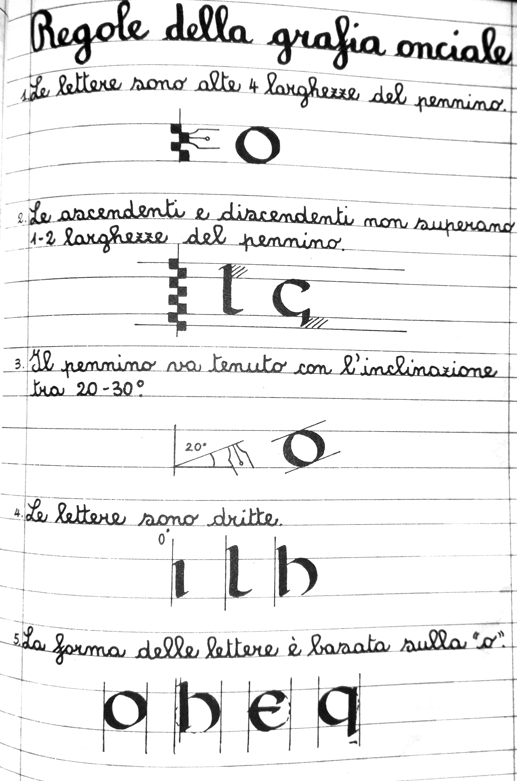 Regole della grafia onciale
1. Le lettere sono alte 4 larghezze del pennino.
o
2. Le ascendenti e discendenti non superano
1-2 larghezze del pennino.
l G
3. Il pennino va tenuto con l'inclinazione
tra 20-30°.
20° o
4. Le lettere sono dritte.
0°
ı l h
5. La forma delle lettere è basata sulla "o".
o h e q